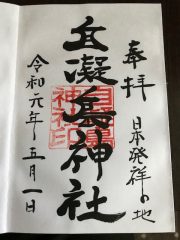 奉拝
日本発祥の地
自凝島神社
神社印
令和元年五月一日